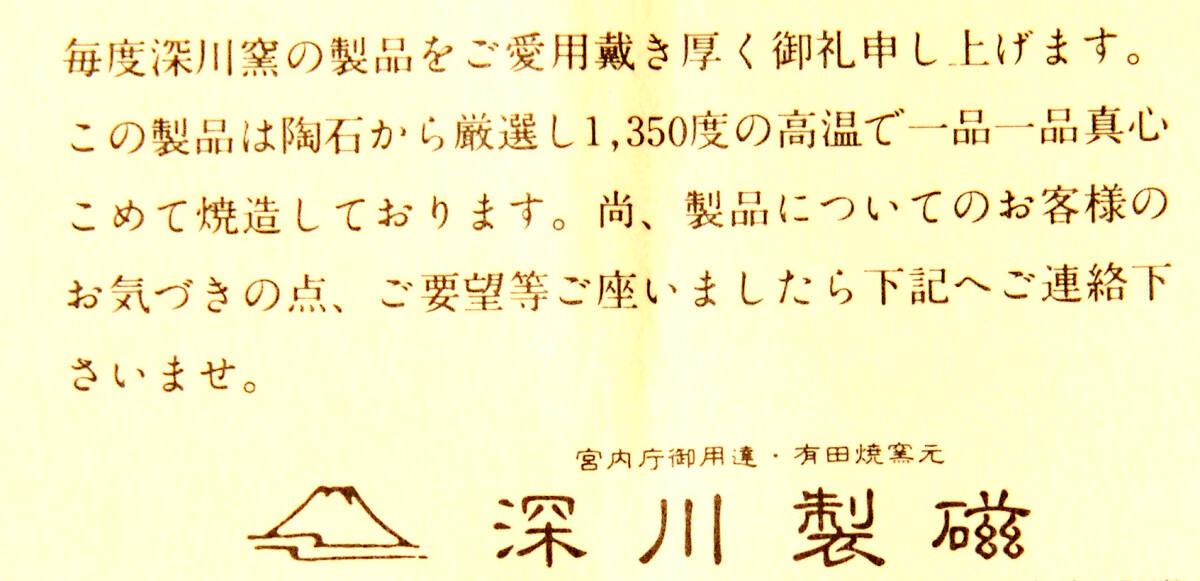 毎度深川窯の製品をご愛用戴き厚く御礼申し上げます。
この製品は陶石から厳選し1,350度の高温で一品一品真心
こめて焼造しております。尚、製品についてのお客様の
お気づきの点、ご要望等ご座いましたら下記へご連絡下
さいませ。
宮内庁御用達・有田焼窯元
深川製磁